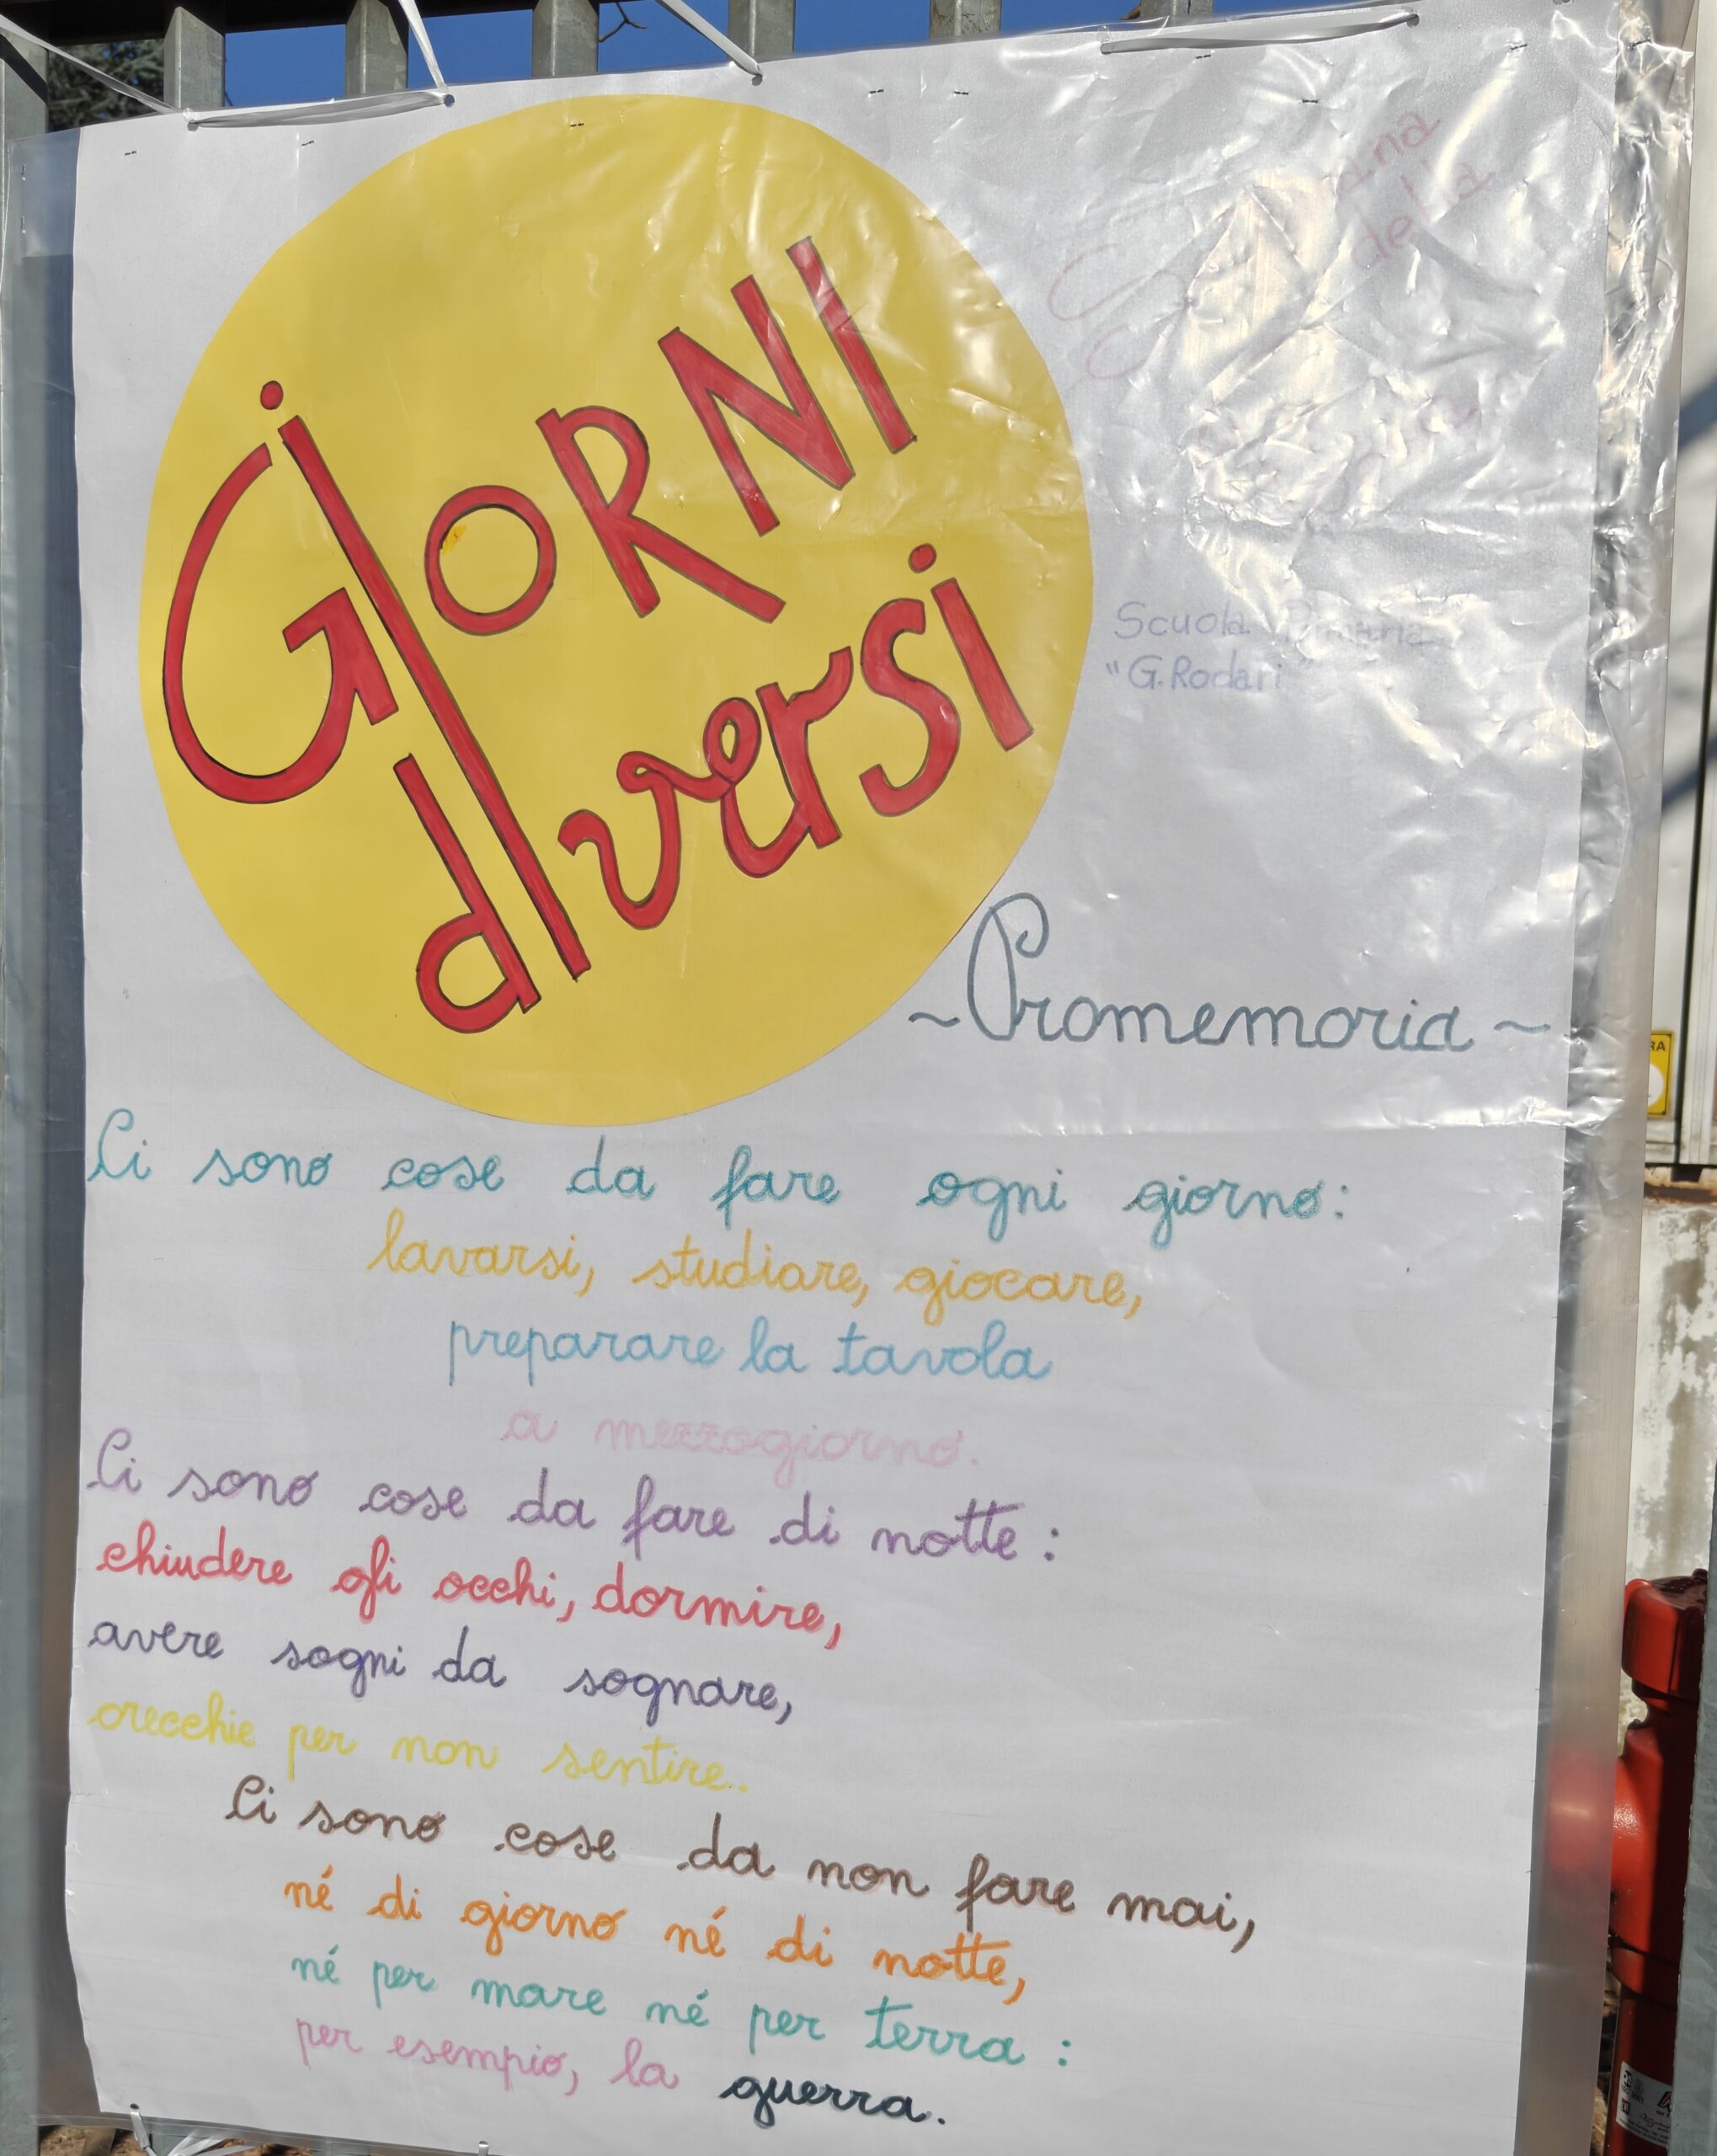 GIORNI
diversi
ana
della
Scuola Primaria
"G. Rodari"
~Promemoria~
Ci sono cose da fare ogni giorno:
lavarsi, studiare, giocare,
preparare la tavola
a mezzogiorno.
Ci sono cose da fare di notte:
chiudere gli occhi, dormire,
avere sogni da sognare,
orecchie per non sentire.
Ci sono cose da non fare mai,
né di giorno né di notte,
né per mare né per terra:
per esempio, la guerra.